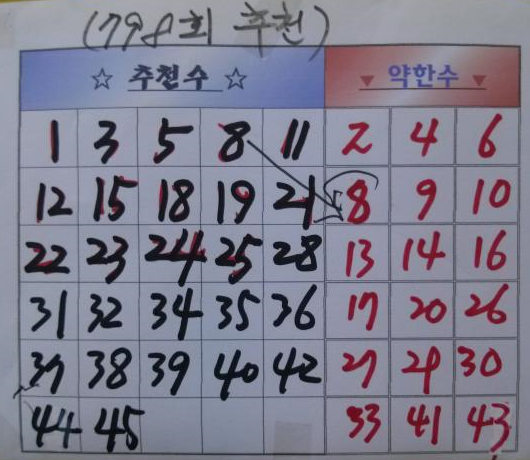 (798회 추천)
☆ 추천수 ☆ ▼ 약한수 ▼
1 3 5 8 11 2 4 6
12 15 18 19 21 8 9 10
22 23 24 25 28 13 14 16
31 32 34 35 36 17 20 26
37 38 39 40 42 27 29 30
44 45 33 41 43